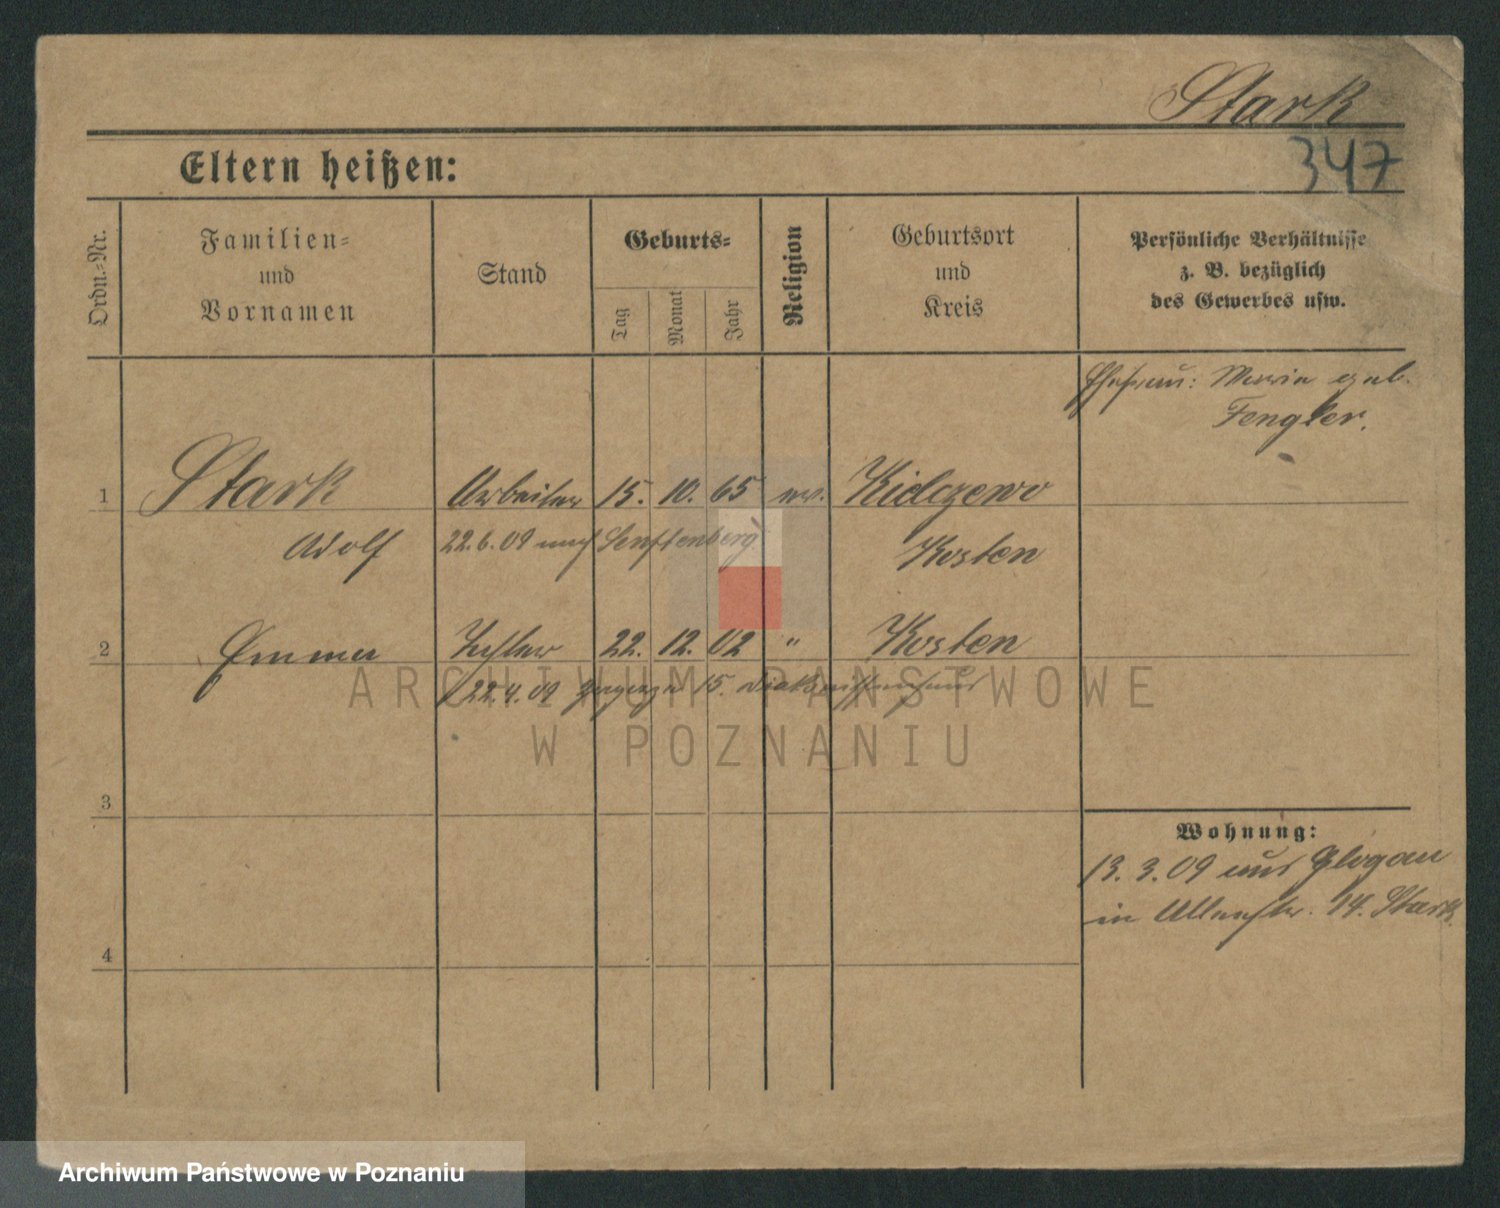 Stark
347
Eltern heißen:
Ordn.-Nr.
Familien-
und
Vornamen
Stand
Geburts-
Tag
Monat
Jahr
Religion
Geburtsort
und
Kreis
Persönliche Verhältnisse
z. B. bezüglich
des Gewerbes usw.
Ehefrau: Maria geb.
Fengler.
1 Stark Arbeiter 15. 10. 65 ev. Kielczewo
Adolf 22.6.09 nach Senftenberg Kosten
2 Emma Tochter 22. 12. 02 " Kosten
22.4.09 15.
ARCHIWUM PAŃSTWOWE
W POZNANIU
3
Wohnung:
13. 3. 09 aus Glogau
in 14. Stark
4
Archiwum Państwowe w Poznaniu